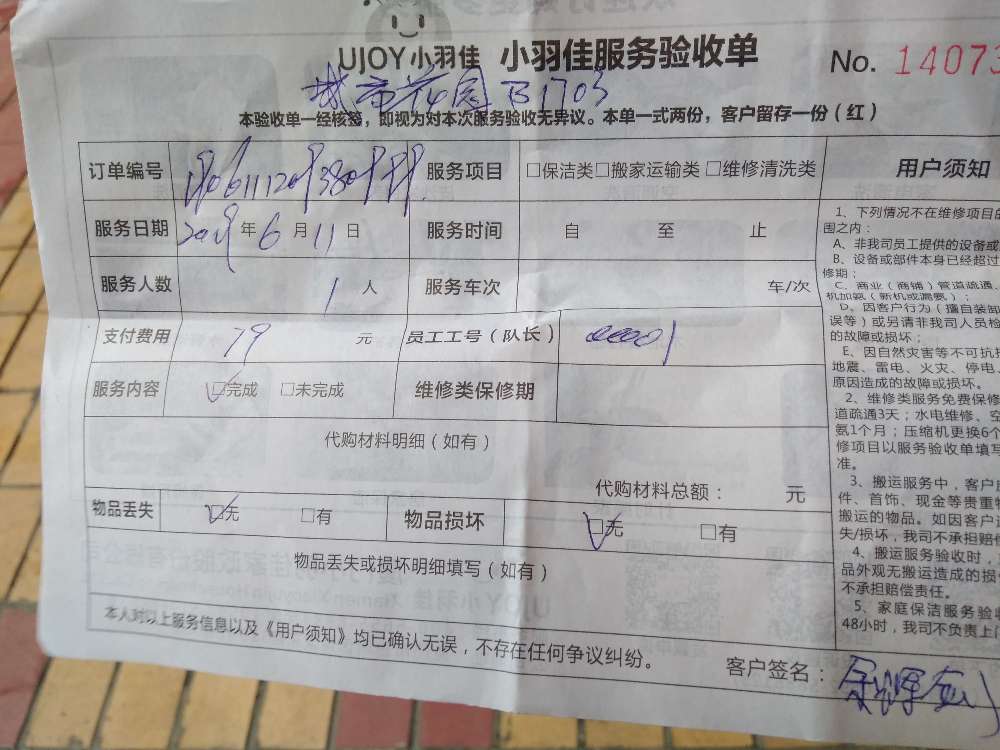 UJOY小羽佳 小羽佳服务验收单 No. 14073
城市花园B1703
本验收单一经核签，即视为对本次服务验收无异议。本单一式两份，客户留存一份（红）
订单编号 服务项目 □保洁类□搬家运输类 □维修清洗类
服务日期 2019年6月11日 服务时间 自 至 止
服务人数 1人 服务车次 车/次
支付费用 79 元 员工工号（队长） 00001
服务内容 □完成 □未完成 维修类保修期
代购材料明细（如有）
代购材料总额： 元
物品丢失 □无 □有 物品损坏 □无 □有
物品丢失或损坏明细填写（如有）
本人对以上服务信息以及《用户须知》均已确认无误，不存在任何争议纠纷。
客户签名：
用户须知
1、下列情况不在维修项目的
围之内：
A、非我司员工提供的设备或
B、设备或部件本身已经超过
修期；
C、商业（商铺）管道疏通、
机加氨（新机或漏氨）；
D、因客户行为（擅自装卸
误等）或另请非我司人员检
的故障或损坏；
E、因自然灾害等不可抗
地震、雷电、火灾、停电、
原因造成的故障或损坏。
2、维修类服务免费保修
道疏通3天；水电维修、空
氨1个月；压缩机更换6个
修项目以服务验收单填写
准。
3、搬运服务中，客户
件、首饰、现金等贵重
搬运的物品。如因客户
失/损坏，我司不承担赔偿
4、搬运服务验收时，
品外观无搬运造成的损
不承担赔偿责任。
5、家庭保洁服务验收
48小时，我司不负责上